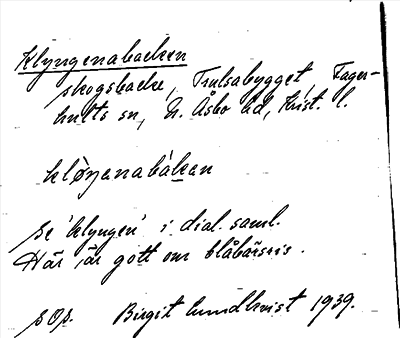 Klyngenabacken
skogsbacke, Trulsabygget, Fager-
hults sn, N. Åsbo hd, Krist. l.
kløŋanabakan
se 'klyngen' i dial. saml.
Här är gott om blåbärsris.
sOp. Birgit Lundkvist 1939.